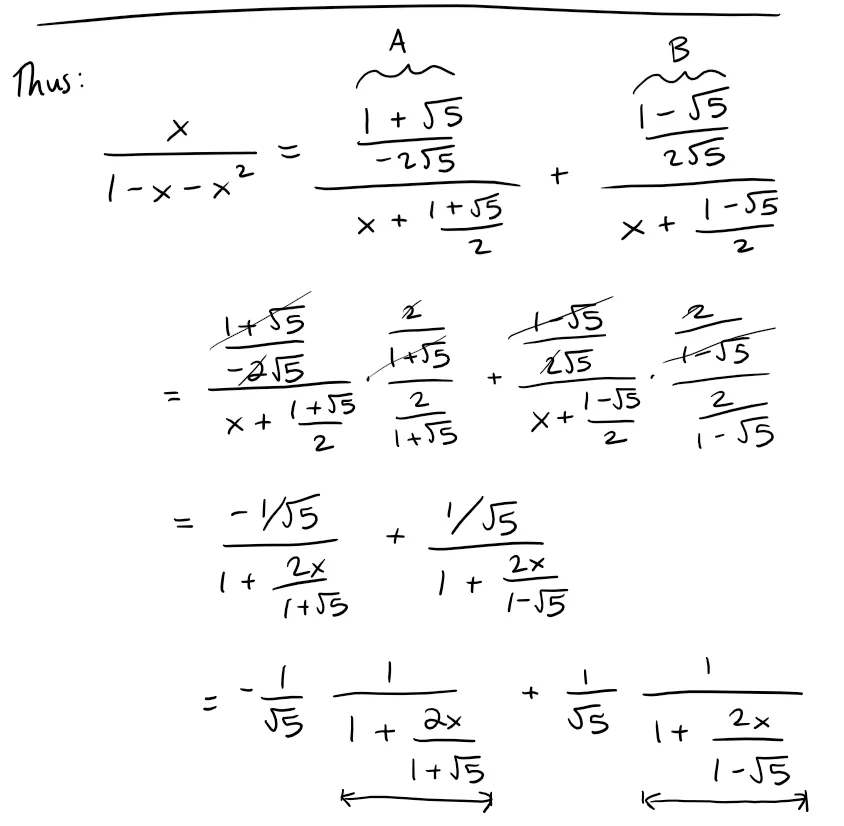 Thus:
A B
x/(1-x-x²) = ((1+√5)/(-2√5))/(x + (1+√5)/2) + ((1-√5)/(2√5))/(x + (1-√5)/2)
= ((1+√5)/(-2√5))/(x + (1+√5)/2) · (2/(1+√5))/(2/(1+√5)) + ((1-√5)/(2√5))/(x + (1-√5)/2) · (2/(1-√5))/(2/(1-√5))
= (-1/√5)/(1 + 2x/(1+√5)) + (1/√5)/(1 + 2x/(1-√5))
= -1/√5 1/(1 + 2x/(1+√5)) + 1/√5 1/(1 + 2x/(1-√5))